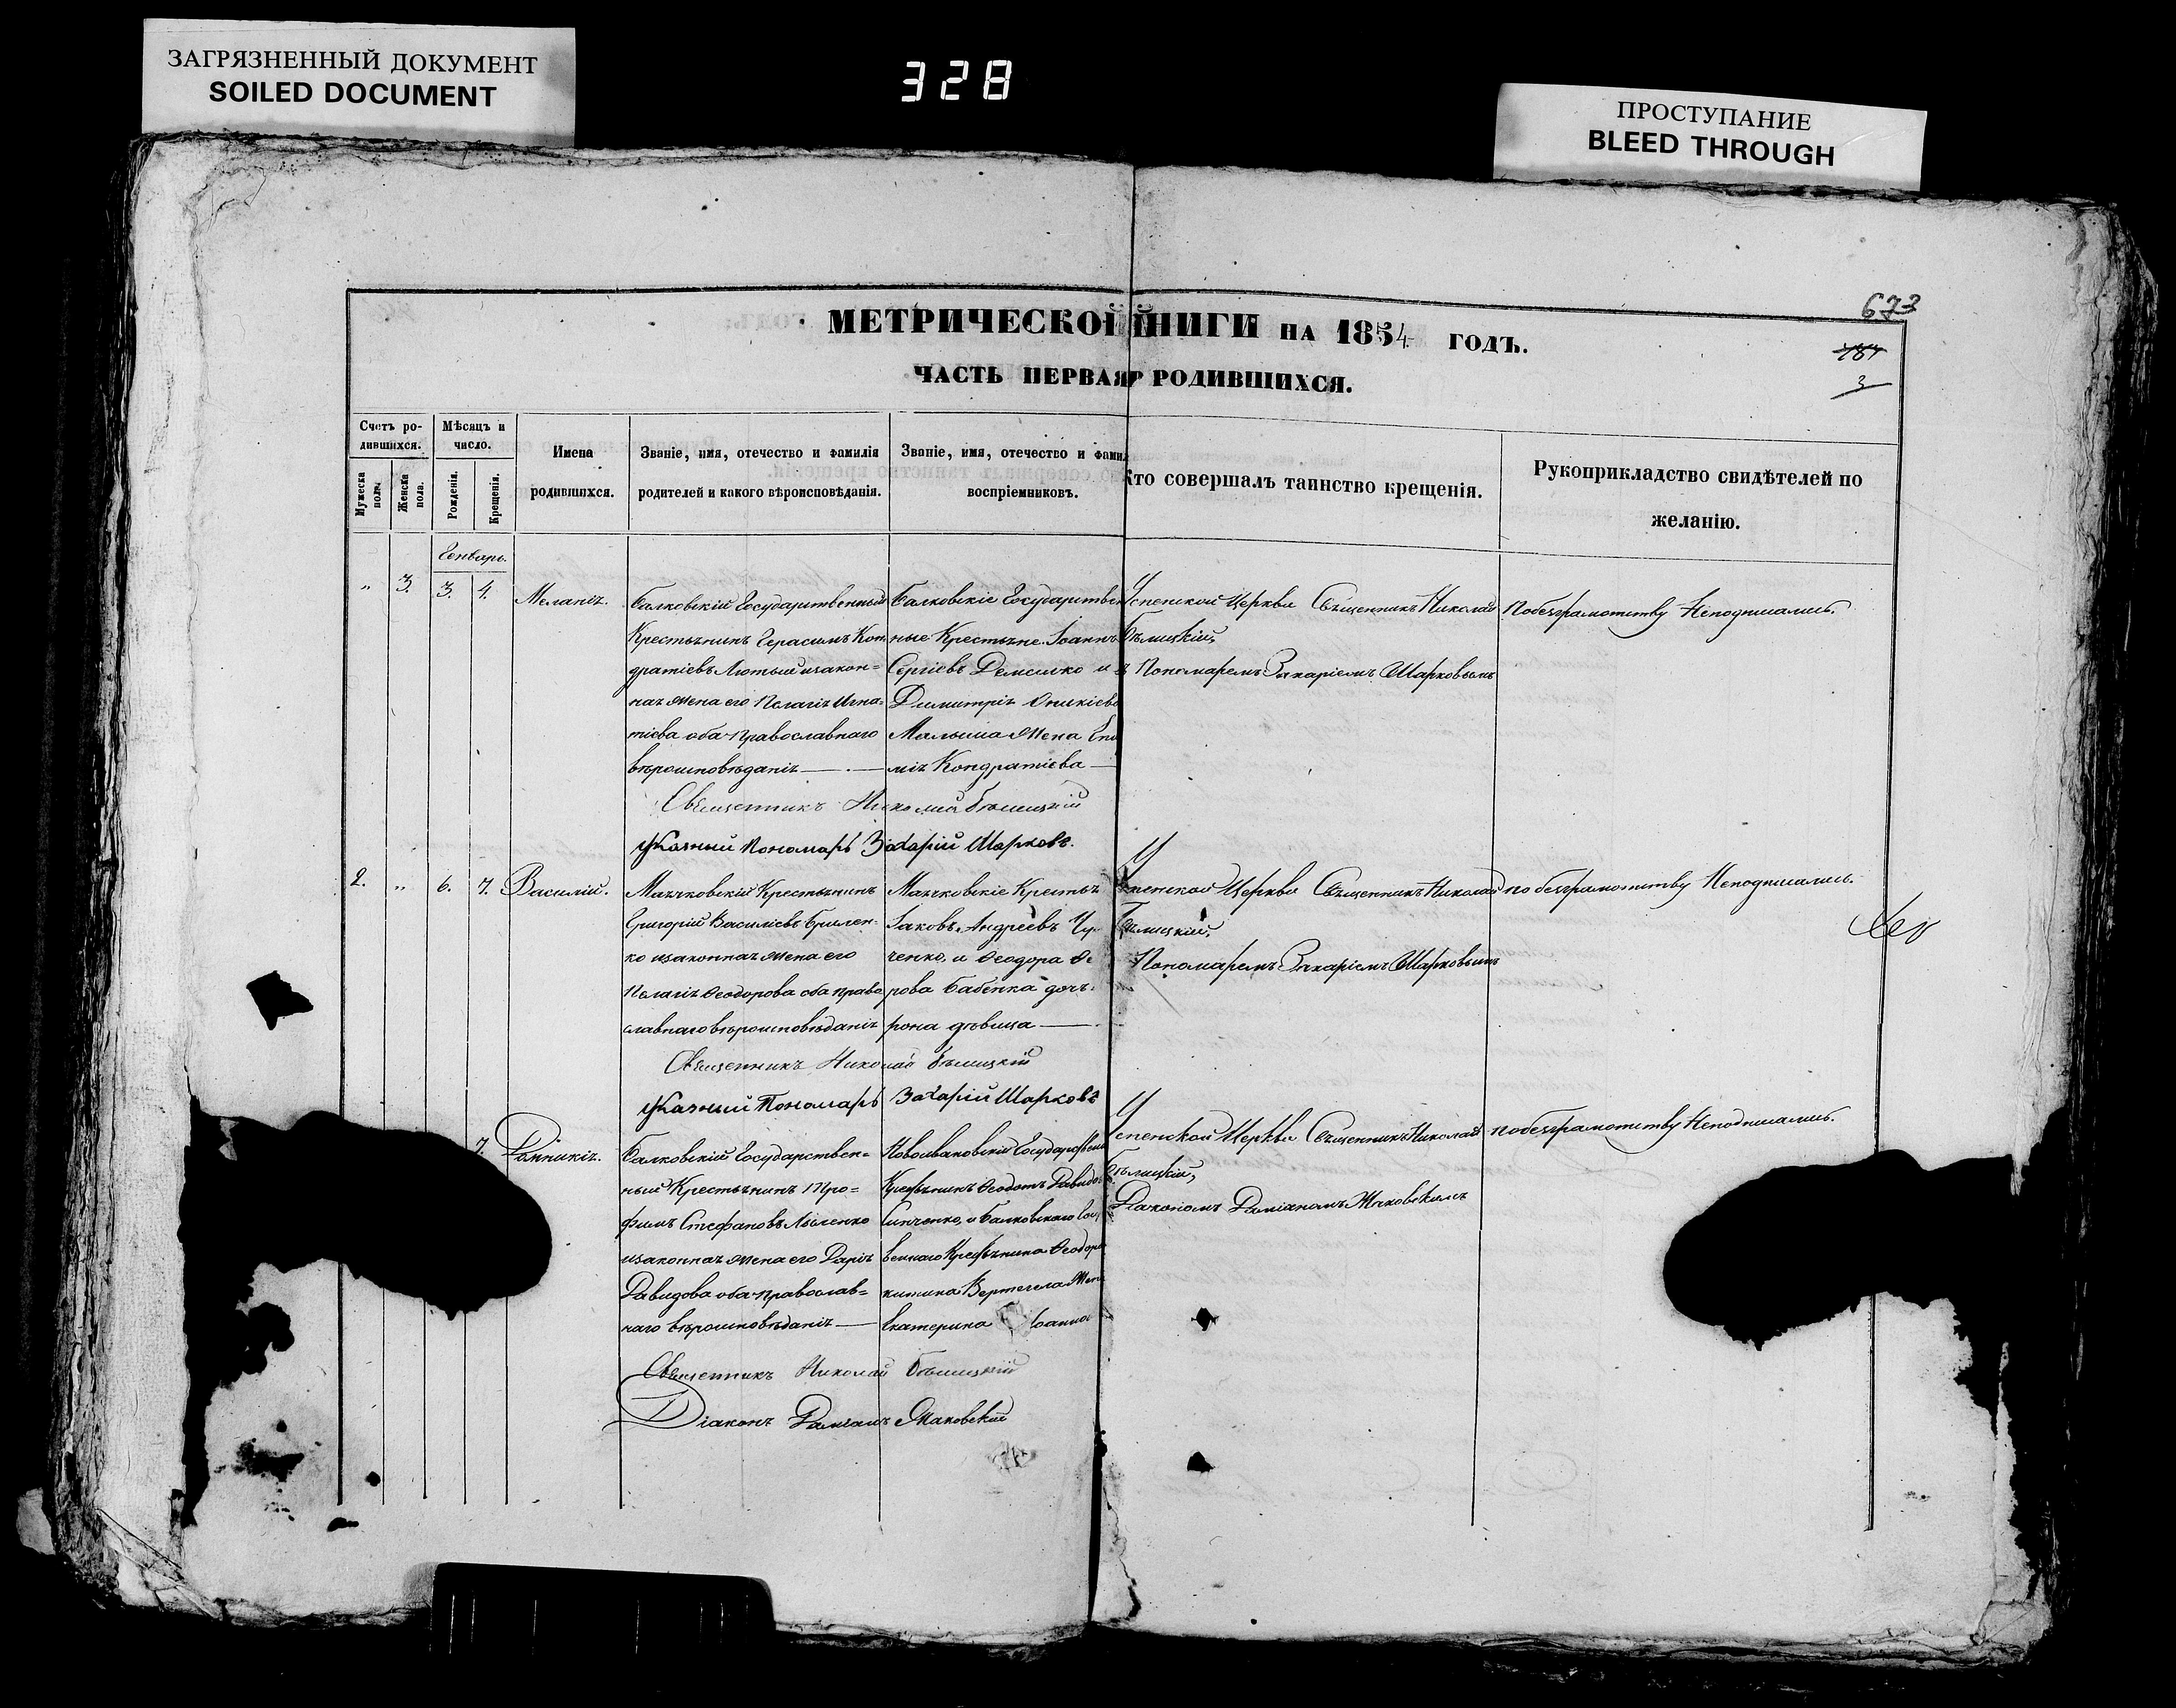 ЗАГРЯЗНЕННЫЙ ДОКУМЕНТ
SOILED DOCUMENT
328
ПРОСТУПАНИЕ
BLEED THROUGH
673
МЕТРИЧЕСКОЙ КНИГИ НА 1854 ГОДЪ.
3
ЧАСТЬ ПЕРВАЯ РОДИВШИХСЯ.
Счетъ родившихся.
Мужеска пола.
Женска пола.
Мѣсяцъ и число.
Рожденія.
Крещенія.
Имена родившихся.
Званіе, имя, отечество и фамилія
родителей и какого вѣроисповѣданія.
Званіе, имя, отечество и фамил
воспріемниковъ.
Кто совершалъ таинство крещенія.
Рукоприкладство свидѣтелей по
желанію.
Генварь.
" 3. 3. 4. Меланія.
Балковскій Государственный
Крестьянинъ Герасимъ Кон
дратіевъ Лютый изакон=
ная жена его Пелагія Игна=
тіева оба православнаго
вѣроисповѣданія
Балковскіе Государствен
ные Крестьяне Іоаннъ
Сергіевъ Демсико и
Димитрія Оникіева
Малыша жена Ев
мія Кондратіева
Успенской Церкви Священникъ Николай
Бѣлицкій,
съ Пономаремъ Захаріемъ Шарковымъ
Побезграмотству Неподписались.
Священникъ Николай Бѣлицкій
Указный Пономарь Захарій Шарковъ.
2. " 6. 7. Василій.
Маячковскій Крестьянинъ
Григорій Василіевъ Брилен=
ко изаконная жена его
Пелагія Ѳеодорова оба право
славнаго вѣроисповѣданія
Маячковскіе Крестья
Іаковъ Андреевъ
ченко, и Ѳеодора Ѳе
рова Бабенка дочь
рона дѣвица
Успенской Церкви Священникъ Николай
Бѣлицкій,
Пономаремъ Захаріемъ Шарковымъ
по безграмотству Неподписались.
Священникъ Николай Бѣлицкій
Указный Пономарь Захарій Шарковъ
7. Домникія.
Балковскій Государствен=
ный Крестьянинъ Тро=
фимъ Стефановъ Лысенко
изаконная жена его Дарія
Давидова оба православ=
наго вѣроисповѣданія
Новоивановскій Государствен
Крестьянинъ Ѳеодотъ Давидо
Синченко, и Балковскаго Гос
веннаго Крестьянина Ѳеодора
китина Вертегела жена
Екатерина Іоанна
Успенской Церкви Священникъ Николай
Бѣлицкій,
Діакономъ Даміаномъ Маковскимъ
побезграмотству Неподписались.
Священникъ Николай Бѣлицкій
Діаконъ Даміанъ Маковскій